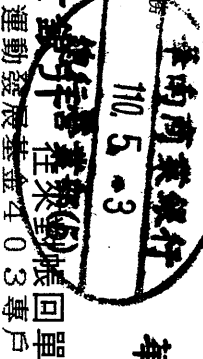 華南商業銀行
110. 5. 3
營業部(5)
往來對帳回單
運動發展基金403專戶
華